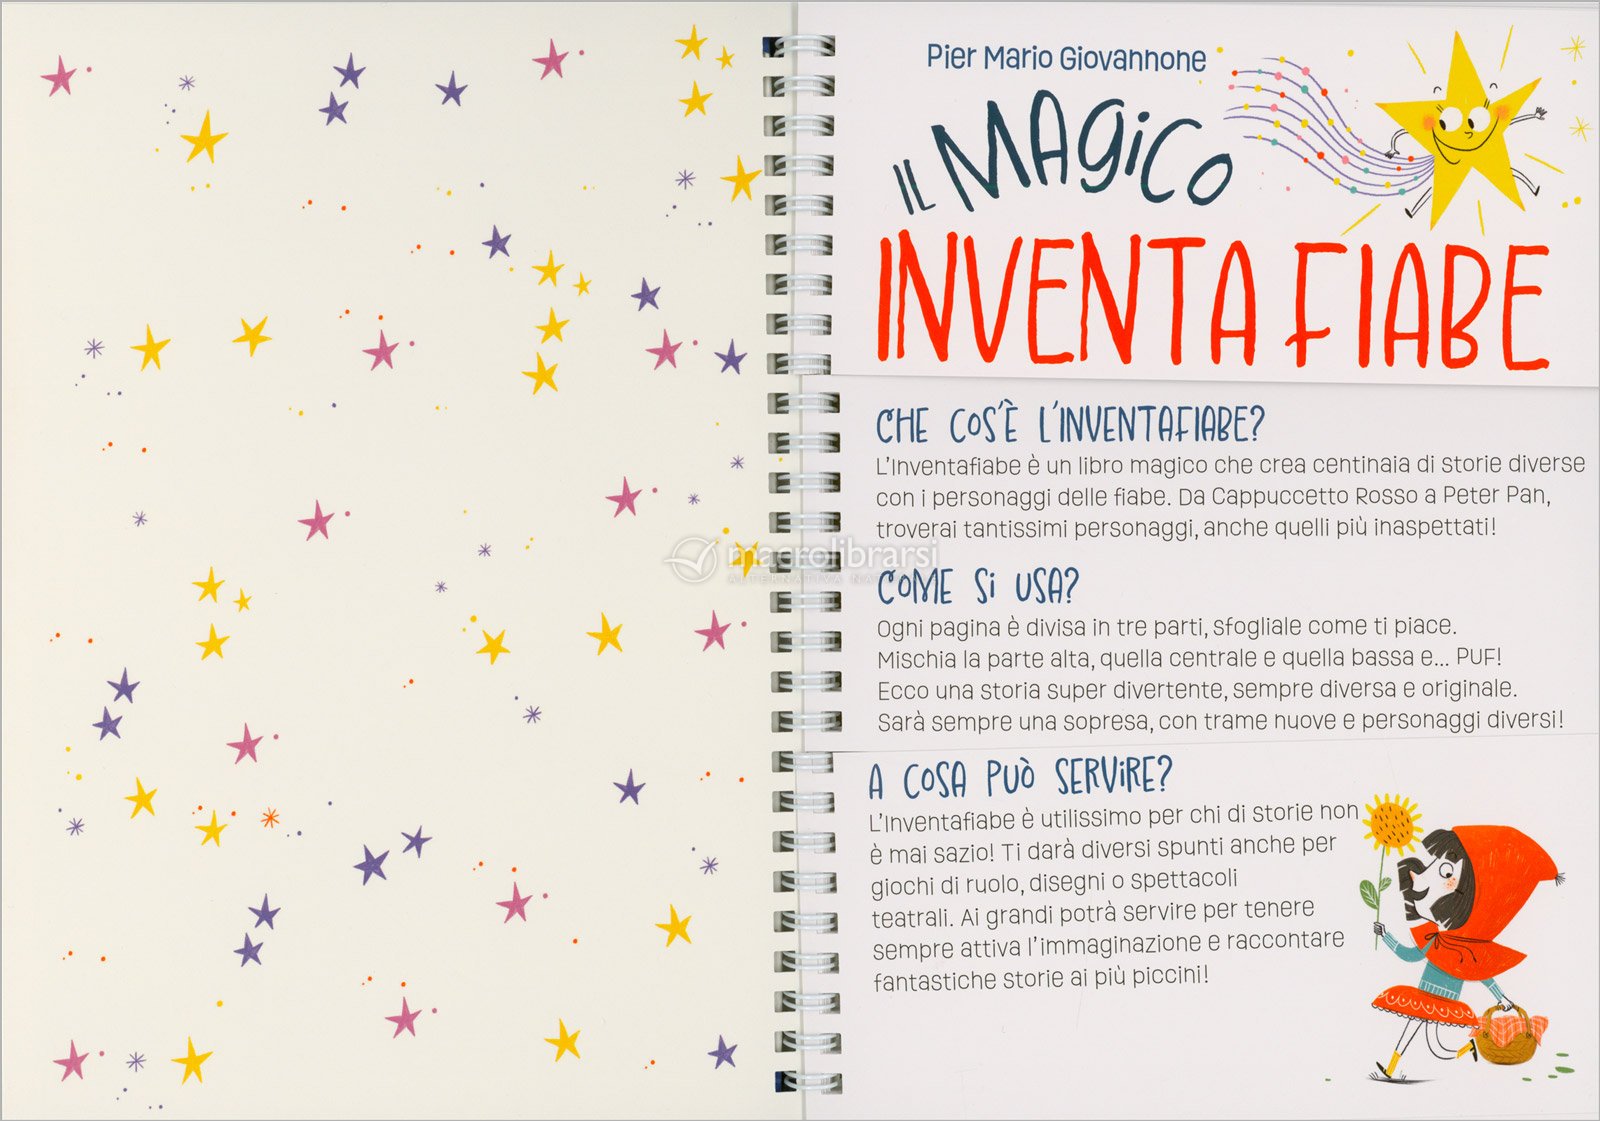 Pier Mario Giovannone
IL MAGICO
INVENTA FIABE
CHE COS'È L'INVENTAFIABE?
L'Inventafiabe è un libro magico che crea centinaia di storie diverse
con i personaggi delle fiabe. Da Cappuccetto Rosso a Peter Pan,
troverai tantissimi personaggi, anche quelli più inaspettati!
macrolibrarsi
COME SI USA?
Ogni pagina è divisa in tre parti, sfogliale come ti piace.
Mischia la parte alta, quella centrale e quella bassa e... PUF!
Ecco una storia super divertente, sempre diversa e originale.
Sarà sempre una sopresa, con trame nuove e personaggi diversi!
A COSA PUÒ SERVIRE?
L'Inventafiabe è utilissimo per chi di storie non
è mai sazio! Ti darà diversi spunti anche per
giochi di ruolo, disegni o spettacoli
teatrali. Ai grandi potrà servire per tenere
sempre attiva l'immaginazione e raccontare
fantastiche storie ai più piccini!